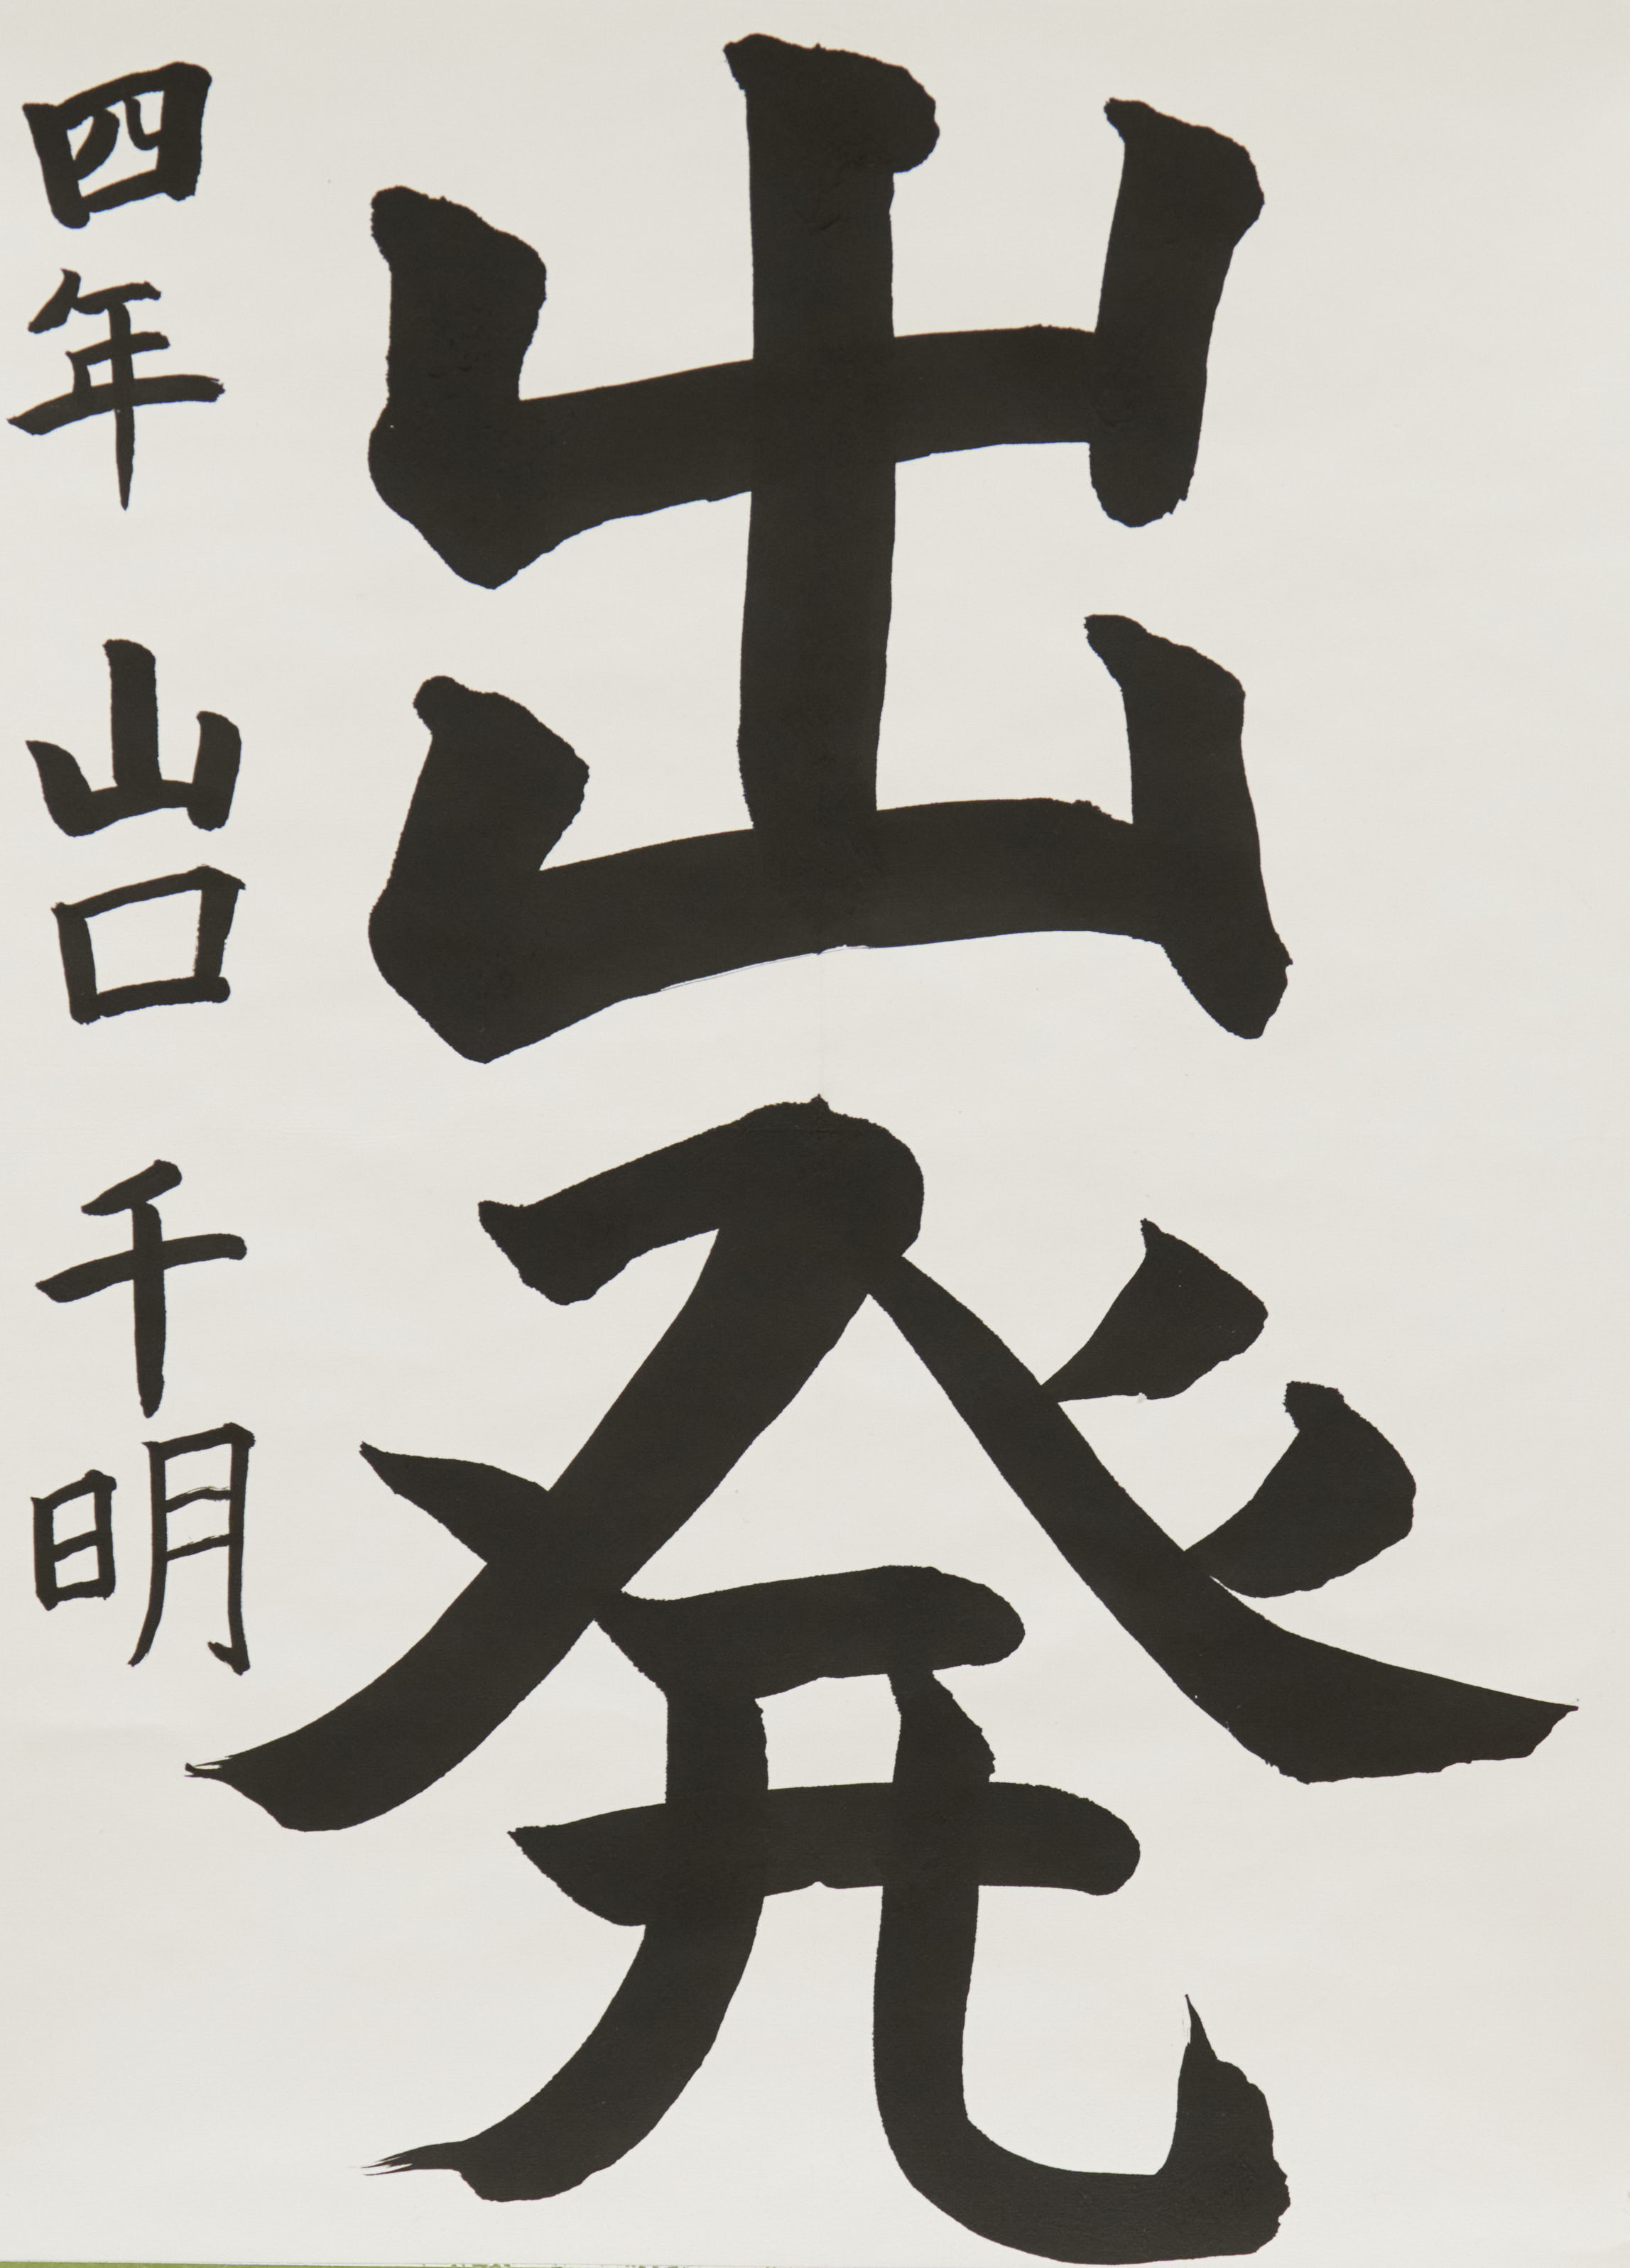 出発
四年 山口 千明